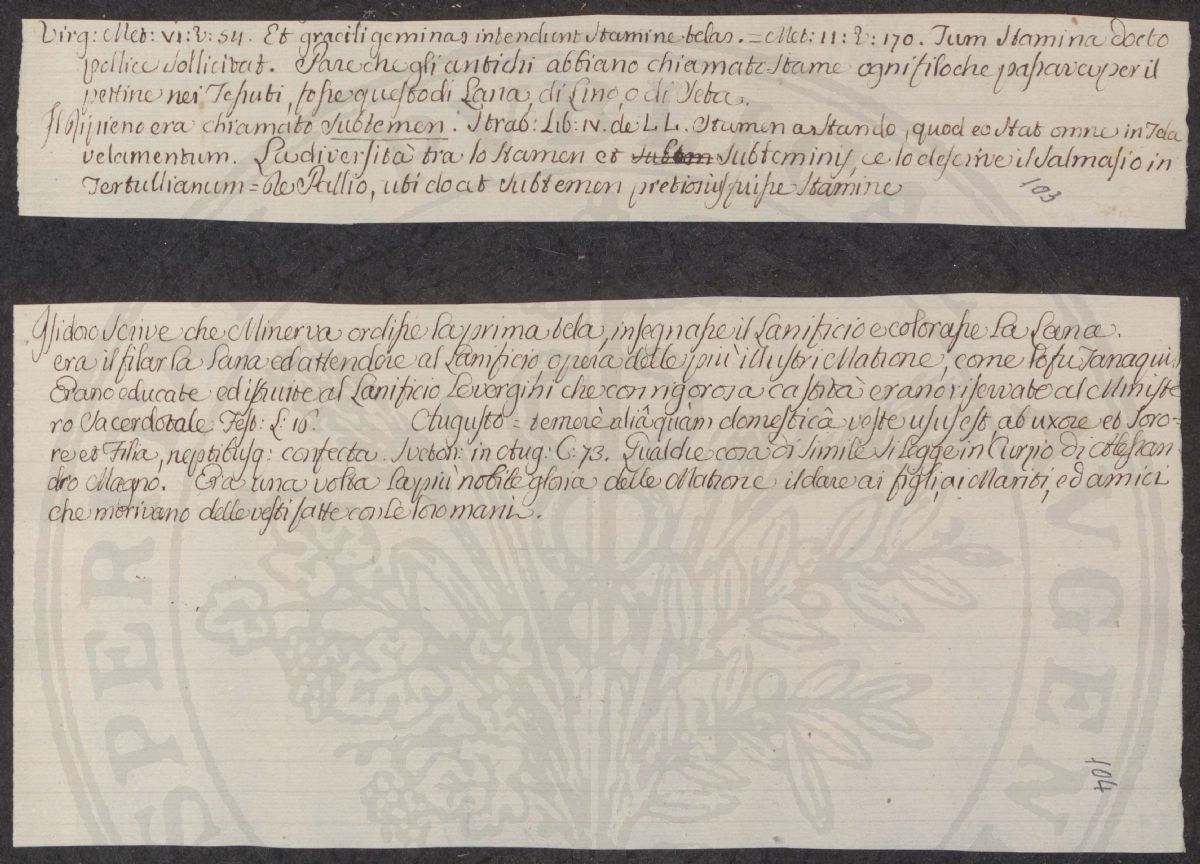 Virg: Met: VI: V: 54. Et gracili geminas intendunt Stamine telas. = Met: 11: V: 170. Tum Stamina docto
pollice sollicitat. Pare che gli antichi abbiano chiamato Stame ogni filo che passava per il
pettine nei Tessuti, fosse questo di Lana, di Lino, o di Seta.
Il Ripieno era chiamato Subtemen. Strab: Lib: IV. de L. L. Stamen a Stando, quod eo Stat omne in Tela
velamentum. La diversità tra lo Stamen et Subteminis, ce lo descrive il Salmasio in
Tertullianum = de Pallio, ubi docat Subtemen pretiosius fuisse Stamine
103
Isidoro Scrive che Minerva ordisse la prima tela, insegnasse il Lanificio e colorasse La Lana.
era il filar la Lana ed attendere al Lanificio opera delle più illustri Matrone, come lo fu Tanaquil
Erano educate ed istruite al Lanificio Le vergini che con rigorosa castità erano riservate al Ministe
ro Sacerdotale. Fest: L: 16. Augusto = temerè aliâ quàm domesticâ veste usus est ab uxore et Soro-
re et Filia, neptibusq: confecta. Sveton: in Aug: C: 73. Qualche cosa di Simile Si legge in Curzio di Alessan
dro Magno. Era una volta la più nobile gloria delle Matrone il dare ai figli, ai Mariti, ed amici
che morivano delle vesti fatte con le loro mani.
104
SPER
VGEN